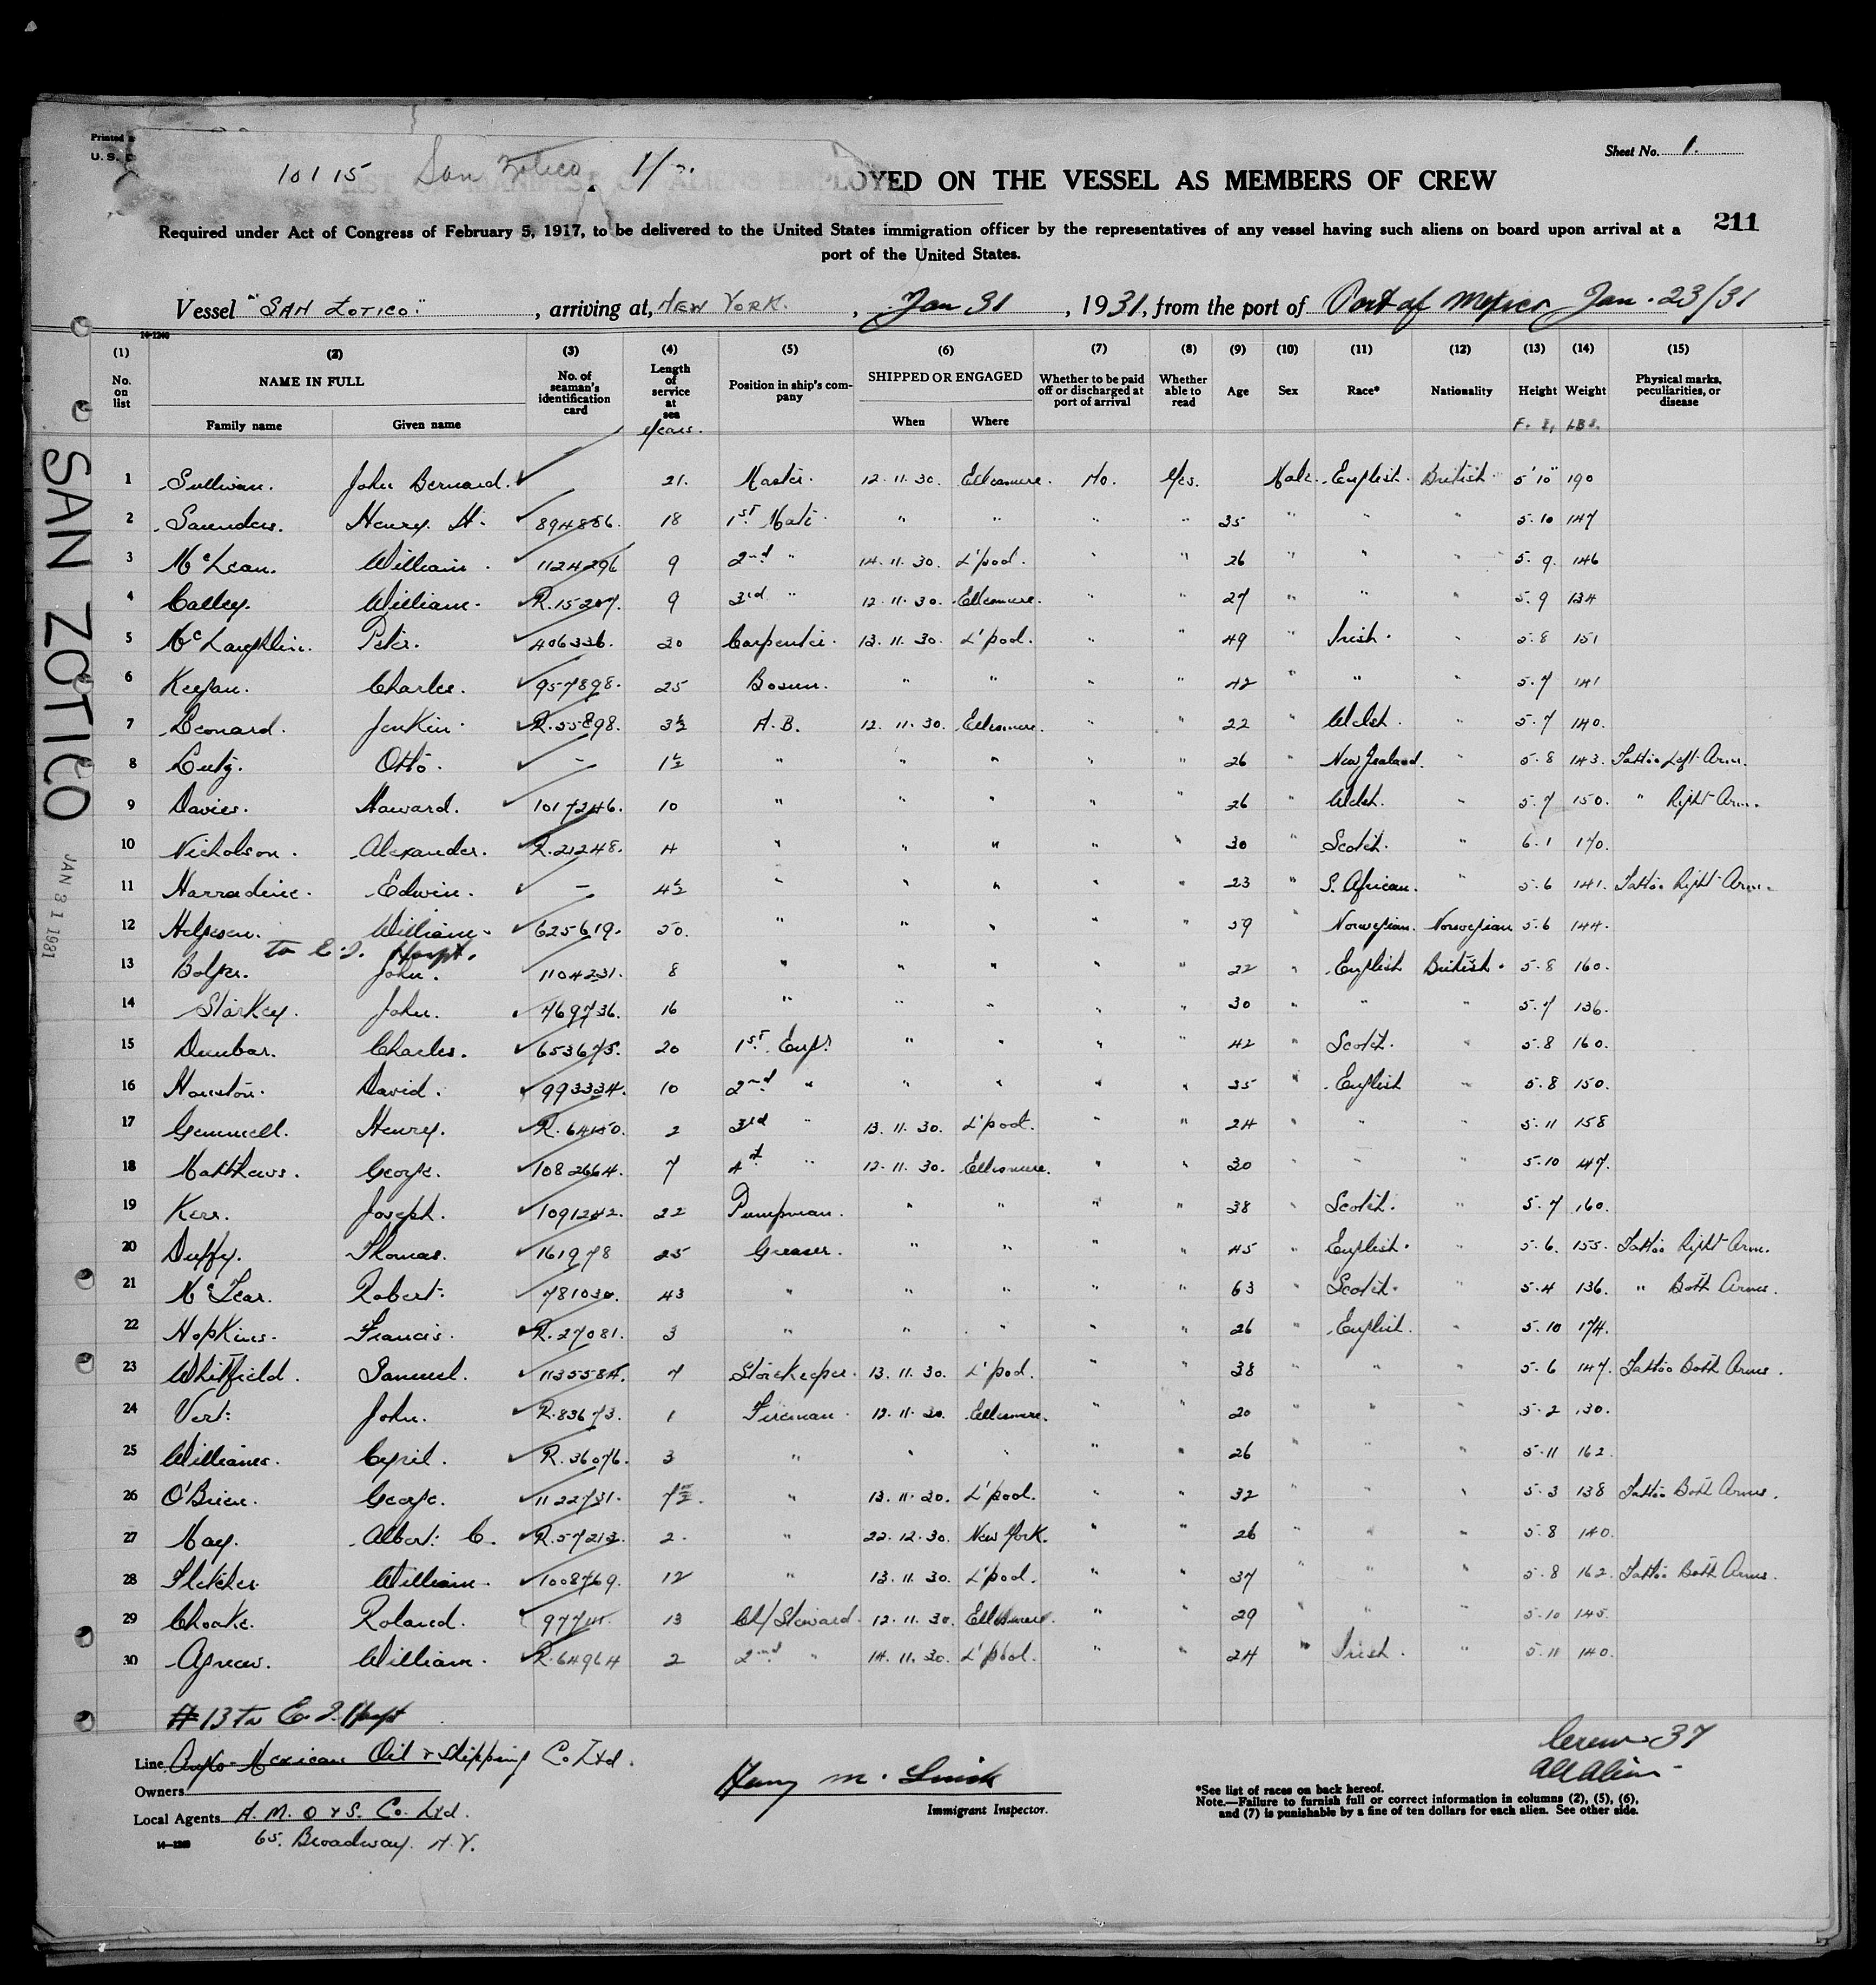 Printed
U. S. D
10115 San Zotico 1/
Sheet No. 1.
OYED ON THE VESSEL AS MEMBERS OF CREW
Required under Act of Congress of February 5, 1917, to be delivered to the United States immigration officer by the representatives of any vessel having such aliens on board upon arrival at a
211
port of the United States.
Vessel "SAN ZOTICO." , arriving at, NEW YORK. , Jan 31 , 1931, from the port of Port of Mexico Jan. 23/31
14-1240
(1) (2) (3) (4) (5) (6) (7) (8) (9) (10) (11) (12) (13) (14) (15)
No. on list NAME IN FULL No. of seaman's identification card Length of service at sea Position in ship's company SHIPPED OR ENGAGED Whether to be paid off or discharged at port of arrival Whether able to read Age Sex Race* Nationality Height Weight Physical marks, peculiarities, or disease
Family name Given name years. When Where F. I, LBS.
1 Sullivan. John Bernard. 21. Master. 12.11.30. Ellesmere. No. Yes. Male. English. British 5'10" 190
2 Saunders. Henry. H. 894886. 18 1st Mate " " " " 35 " " " 5.10 147
3 McLean. William. 1124296 9 2nd " 14.11.30. L'pool. " " 26 " " " 5.9. 146
4 Calley. William. R.15207. 9 3rd " 12.11.30. Ellesmere. " " 27 " " " 5.9 134
5 McLaughlin. Peter. 406336. 20 Carpenter. 13.11.30. L'pool. " " 49 " Irish. " 5.8 151
6 Keegan. Charles. 957898. 25 Bosun. " " " " 42 " " " 5.7 141
7 Leonard. Jenkin. R.55898. 3½ A.B. 12.11.30. Ellesmere. " " 22 " Welsh. " 5.7 140.
8 Lutz. Otto. - 1½ " " " " " 26 " New Zealand. " 5.8 143. Tattoo Left Arm.
9 Davies. Howard. 1017246. 10 " " " " " 26 " Welsh. " 5.7 150. " Right Arm.
10 Nicholson. Alexander. R.21248. 4 " " " " " 30 " Scotch. " 6.1 170.
11 Harradine. Edwin. - 4½ " " " " " 23 " S. African. " 5.6 141. Tattoo Right Arm.
12 Helgesen. William. 625619. 30. " " " " " 59 " Norwegian. Norwegian 5.6 144.
to E.I. Hospt.
13 Bolger. John. 1104231. 8 " " " " " 22 " English British. 5.8 160.
14 Starkey. John. 769736. 16 " " " " " 30 " " " 5.7 136.
15 Dunbar. Charles. 653675. 20 1st. Engr. " " " " 42 " Scotch. " 5.8 160.
16 Houston. David. 993334. 10 2nd " " " " " 35 " English " 5.8 150.
17 Gemmell. Henry. R.64150. 2 3rd " 13.11.30. L'pool. " " 24 " " " 5.11 158
18 Matthews. George. 1082664. 7 4th " 12.11.30. Ellesmere. " " 30 " " " 5.10 147.
19 Kerr. Joseph. 1091242. 22 Pumpman. " " " " 38 " Scotch. " 5.7 160.
20 Duffy. Thomas. 161978 25 Greaser. " " " " 45 " English. " 5.6. 155. Tattoo Right Arm.
21 McFear. Robert. 781030. 43 " " " " " 63 " Scotch. " 5.4 136. " Both Arms.
22 Hopkins. Francis. R.27081. 3 " " " " " 26 " English. " 5.10 174.
23 Whitfield. Samuel. 1135584. 7 Storekeeper. 13.11.30. L'pool. " " 38 " " " 5.6 147. Tattoo Both Arms.
24 Vert. John. R.83673. 1 Fireman. 12.11.30. Ellesmere. " " 20 " " " 5.2 130.
25 Williams. Cyril. R.36076. 3 " " " " " 26 " " " 5.11 162.
26 O'Brien. George. 1122731. 7½. " 13.11.30. L'pool. " " 32 " " " 5.3 138 Tattoo Both Arms.
27 May. Albert. C. R.57213. 2. " 22.12.30. New York. " " 26 " " " 5.8 140.
28 Fletcher. William. 1008769. 12 " 13.11.30. L'pool. " " 37 " " " 5.8 162. Tattoo Both Arms.
29 Choake. Roland. 13 Ch/Steward. 12.11.30. Ellesmere. " " 29 " " " 5.10 145.
30 Agnew. William. R.64964 2 2nd " 14.11.30. L'pool. " " 24 " Irish. " 5.11 140.
#13 to E.I. Hospt
SAN ZOTICO
JAN 31 1931
Line Anglo-Mexican Oil & Shipping Co Ltd.
Owners
Local Agents A. M. O & S. Co. Ltd.
65. Broadway. N.Y.
14-1240
Immigrant Inspector.
Crew 37
All Alien
*See list of races on back hereof.
Note.—Failure to furnish full or correct information in columns (2), (5), (6),
and (7) is punishable by a fine of ten dollars for each alien. See other side.